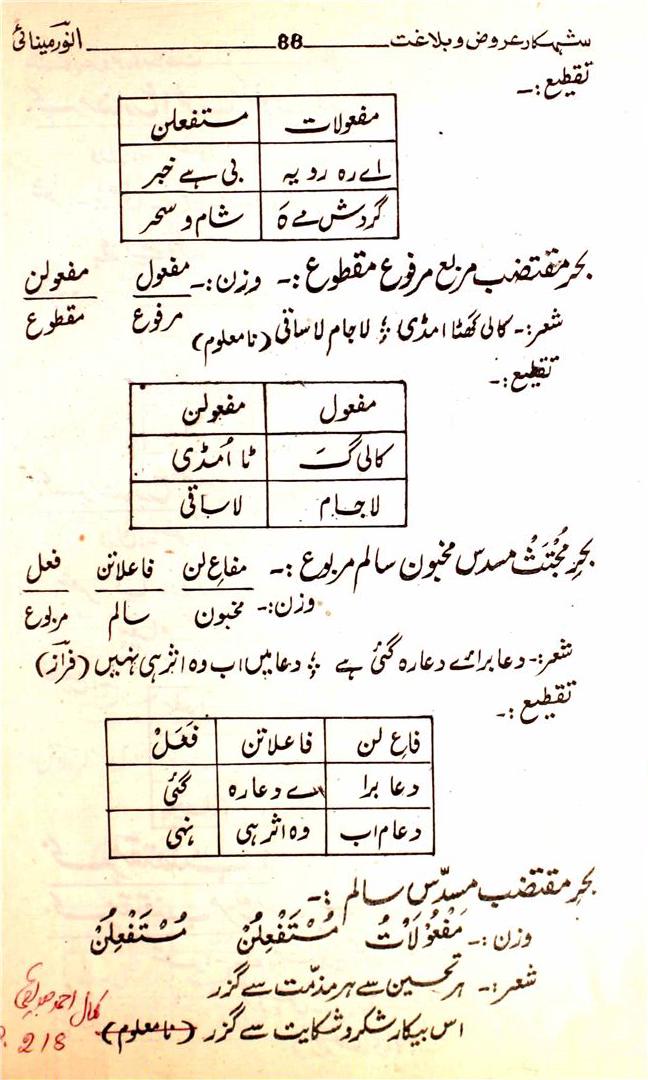 شہکار عروض و بلاغت 88 انور مینائی
تقطیع :۔
مفعولات مستفعلن
اے رہ رو یہ بی ہے خبر
گردش مے ہَ شام و سحر
بحر مقتضب مربع مرفوع مقطوع :۔ وزن :۔ مفعول مفعولن
مرفوع مقطوع
شعر :۔ کالی گھٹا امڈی ؛ لا جام لا ساقی (نامعلوم)
تقطیع :۔
مفعول مفعولن
کالی گَ ٹا اُمڈی
لا جام لا ساقی
بحرِ مُجْتَثْ مسدس مخبون سالم مربوع :۔ مفاع لن فاعلاتن فعل
وزن :۔ مخبون سالم مربوع
شعر :۔ دعا برائے دعا رہ گئی ہے ؛ دعا میں اب وہ اثر ہی نہیں (فراز)
تقطیع :۔
فاع لن فاعلاتن فَعَلْ
دعا برا ے دعا رہ گئی
دعا م اب وہ اثر ہی نہی
بحر مقتضب مسدّس سالم :۔
وزن :۔ مَفْعُوْلَاتُ مُسْتَفْعِلُنْ مُسْتَفْعِلُنْ
شعر :۔ ہر تحسین سے ہر مذمّت سے گزر
اس بیکار شکر و شکایت سے گزر (نامعلوم)
کمال احمد صدیقی
P. 218